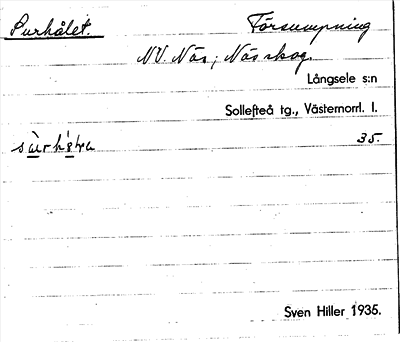 Purhålet. Försumpning
NV. Näs; Näs skog.
Långsele s:n
Sollefteå tg., Västernorrl. l.
35.
Sven Hiller 1935.